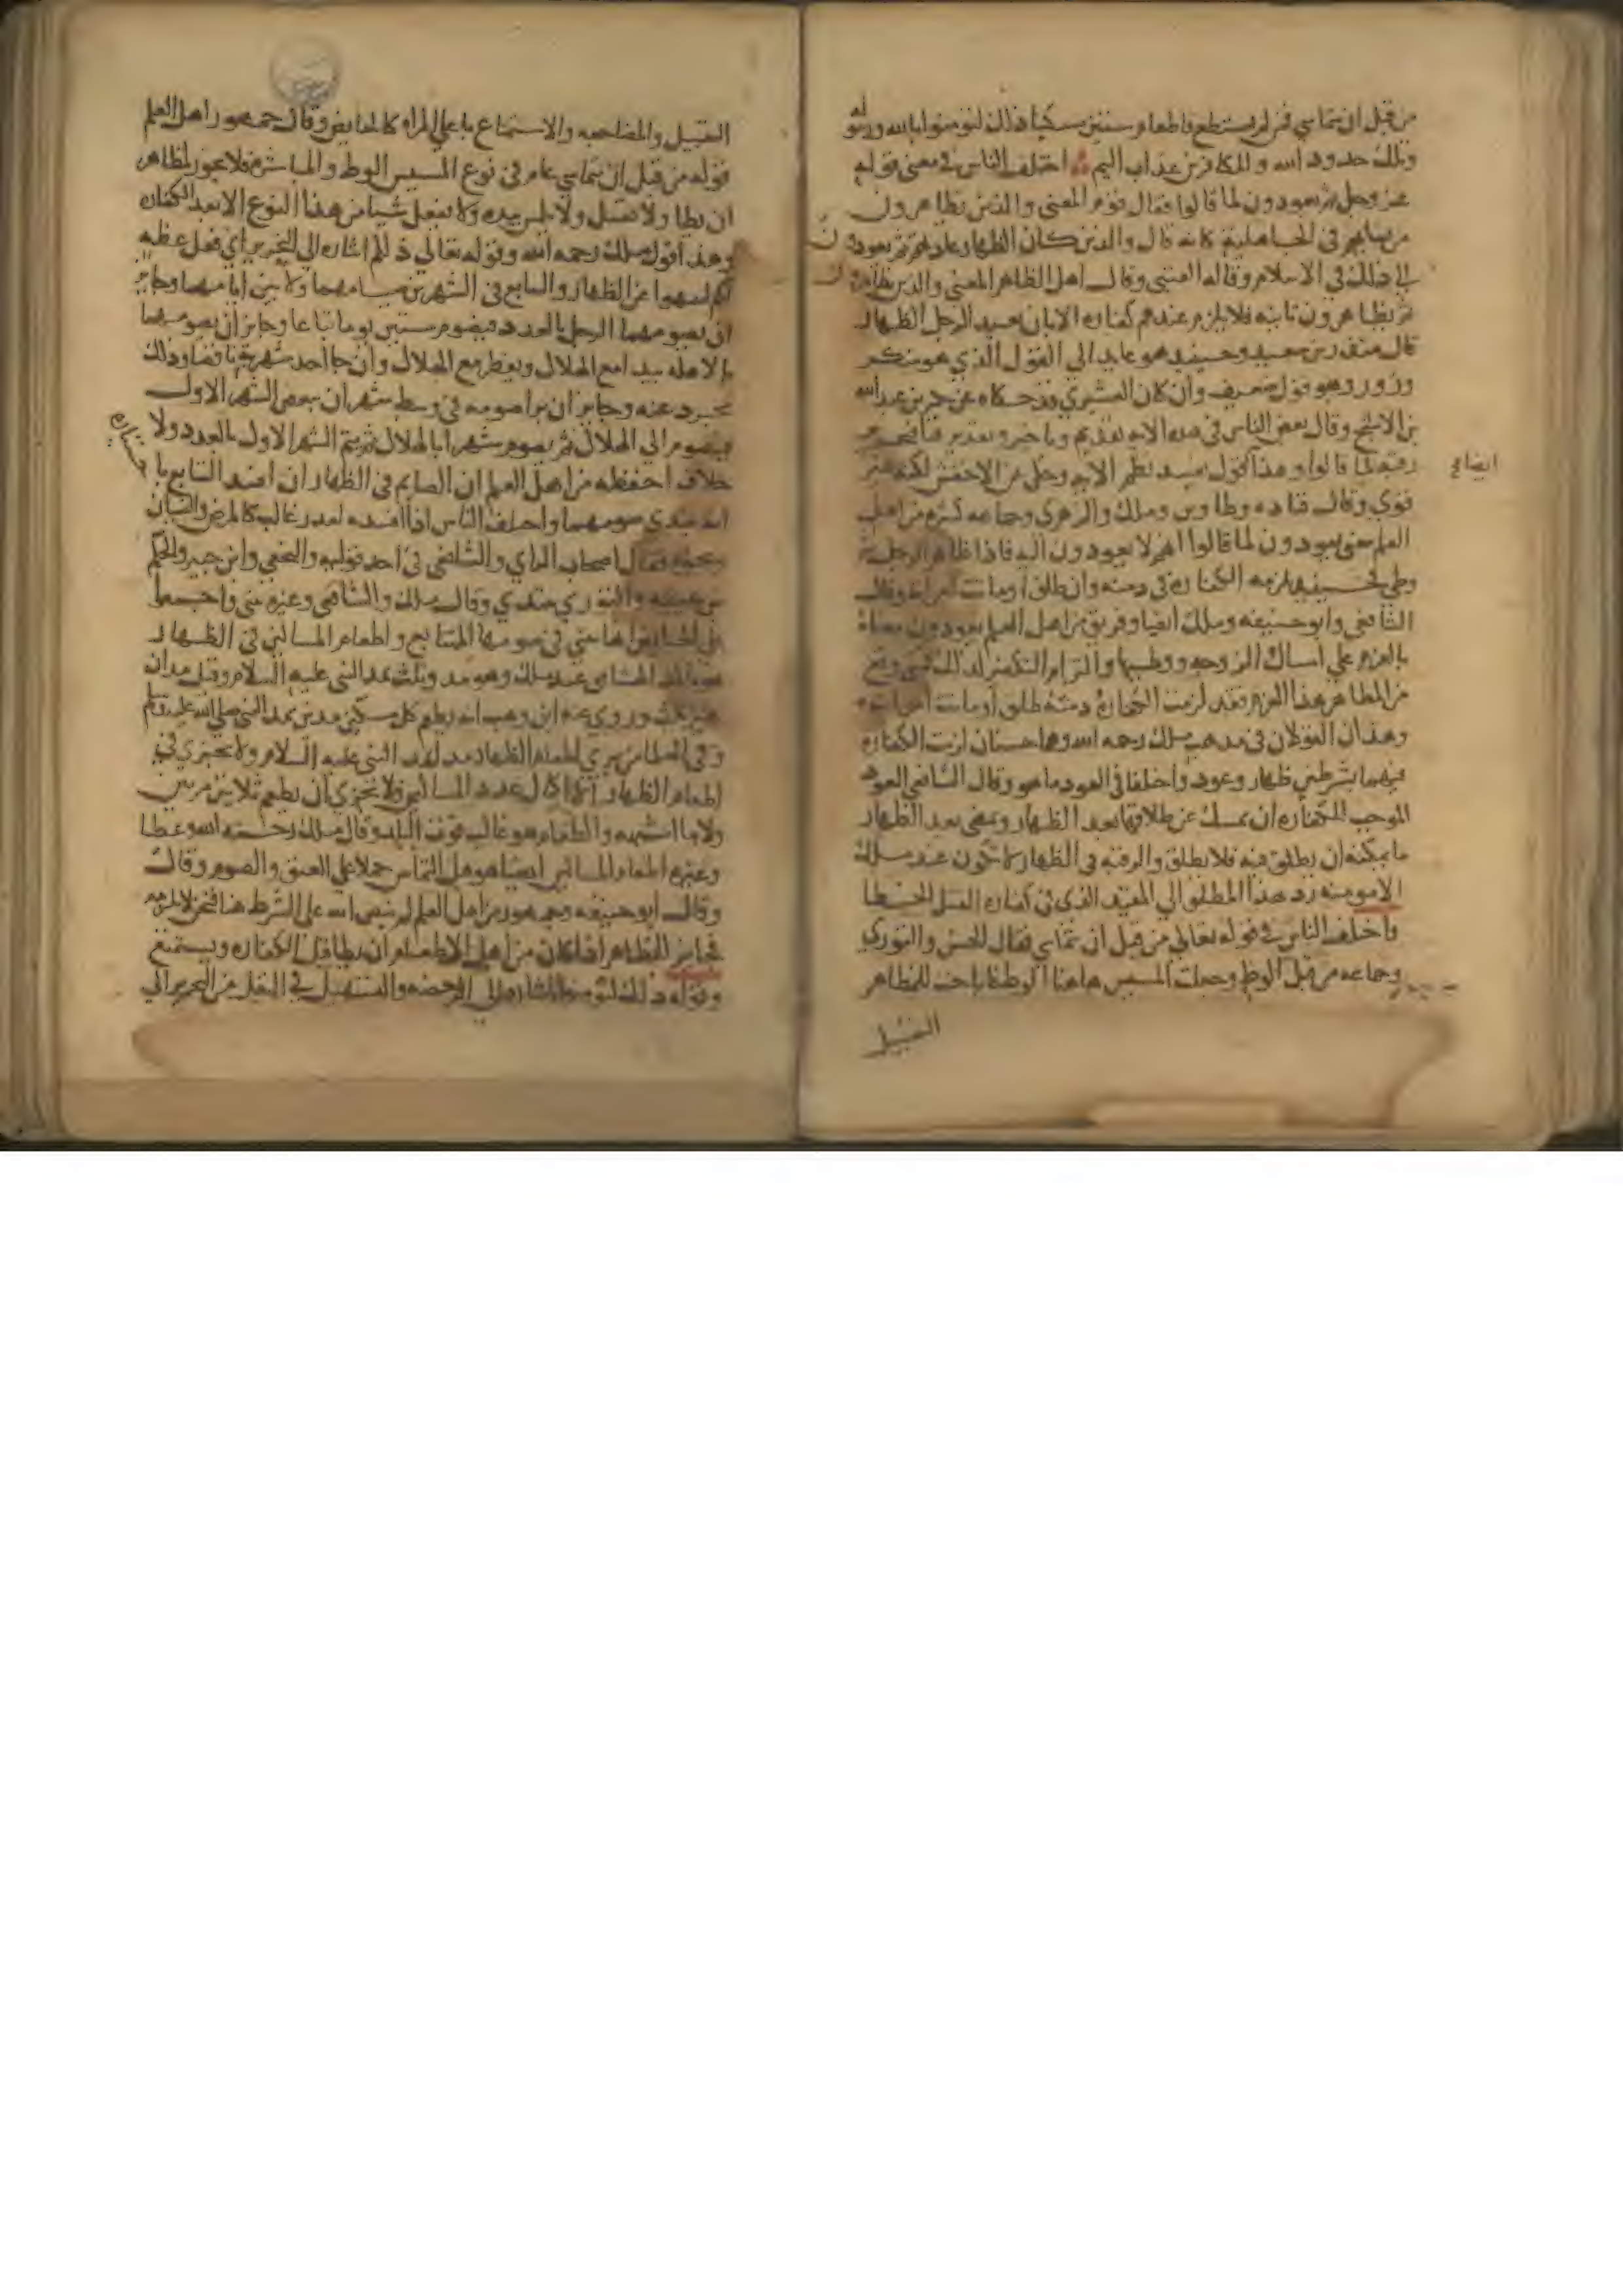 من قبل ان يتماسا فمن لم يستطع فاطعام ستين مسكينا ذلك لتومنوا بالله ورسوله
وتلك حدود الله وللكافرين عذاب اليم اختلف الناس في معنى قوله
عز وجل ثم يعودون لما قالوا فقال قوم المعنى والذين يظاهرون
من نسايهم في الجاهلية كانه قال والذين كان الظهار عادتهم ثم يعودون
الى ذلك في الاسلام وقاله القتبي وقال اهل الظاهر المعنى والذين يظاهرون
ثم يظاهرون ثانيه فلا يلزم عندهم كفاره الا بان يعيد الرجل الظهار
قال منذر بن سعيد وحينيذ هو عايد الى القول الذي هو منكر
وزور وهو قول ضعيف وان كان القشيري قد حكاه عن بكير بن عبد الله
بن الاشج وقال بعض الناس في هذه الايه تقديم وتاخير وتقديره فتحرير
رقبه لما قالوا وهذا قول يفسد نظم الايه وحكي عن الاخفش لكنه غير
ايضا
قوي وقال قتاده وطاوس وملك والزهري وجماعه كثيره من اهل
العلم معنى يعودون لما قالوا اي لا يعودون اليه فاذا ظاهر الرجل ثم
وطي فحينيذ يلزمه الكفاره في ذمته وان طلق او ماتت امراته وقال
الشافعي وابو حنيفه وملك ايضا وفريق من اهل العلم يعودون معناه
بالعزم على امساك الزوجه ووطيها والتزام التكفير لذلك فمتى وقع
من المظاهر هذا العزم فقد لزمت الكفاره ذمته طلق او ماتت امراته
وهذان القولان في مذهب ملك رحمه الله وهما حسنان لزمت الكفاره
فيهما بشرطين ظهار وعود واختلفا في العود ما هو وقال الشافعي العود
الموجب للكفاره ان يمسك عن طلاقها بعد الظهار ويمضي بعد الظهار
ما يمكنه ان يطلق فيه فلا يطلق والرقبه في الظهار لا تكون عند ملك
الا مومنه رد هذا المطلق الى المقيد الذي في كفاره القتل الخطا
واختلف الناس في قوله تعالى من قبل ان يتماسا فقال الحسن والثوري
وجماعه من قبل الوطي وجعلت المسيس هاهنا الوطي فاباحت للمظاهر
التقبيل
التقبيل والمضاجعه والاستمتاع باعلى المراه كالحايض وقال جمهور اهل العلم
قوله من قبل ان يتماسا عام في نوع المسيس الوطي والمباشره فلا يجوز لمظاهر
ان يطا ولا يقبل ولا يلمس بيده ولا يفعل شيا من هذا النوع الا بعد الكفاره
وهذا قول ملك رحمه الله وقوله تعالى ذلكم اشاره الى التحرير اي فعل عظه
لكم لتنتهوا عن الظهار والتتابع في الشهرين صيامهما ولا بين ايامهما وجايز
ان يصومهما الرجل بالعدد فيصوم ستين يوما تباعا وجايز ان يصومهما
بالاهله يبدا مع الهلال ويفطر مع الهلال وان جا احد شهريه ناقصا وذلك
يجزي عنه وجايز ان بدا صومه في وسط شهر ان يبعض الشهر الاول
فيصوم الى الهلال ثم يصوم شهرا بالهلال ثم يتم الشهر الاول بالعدد ولا
خلاف احفظه من اهل العلم ان الصايم في الظهار ان افسد التتابع با
ختياره
انه يبتدي صومهما واختلف الناس اذا افسده لعذر غالب كالمرض والنسيان
ونحوه فقال اصحاب الراي والشافعي في احد قوليه والنخعي وابن جبير والحكم
بن عتيبه والثوري يبتدي وقال ملك والشافعي وغيره يبني واجمعوا
على الحايض انها تبني في صومها المتتابع واطعام المساكين في الظهار
هو بالمد الهشامي عند ملك وهو مد وثلث بمد النبي عليه السلام وقيل مدان
غير ثلث وروى عنه ابن وهب انه يطعم كل مسكين مدين بمد النبي صلى الله عليه وسلم
وفي العلما من يرى اطعام الظهار مد بمد النبي عليه السلام ولا يجزي في
اطعام الظهار الا اكمال عدد المساكين ولا يجزي ان يطعم ثلاثين مرتين
ولا ما اشبهه والطعام هو غالب قوت البلد وقال ملك رحمه الله وعطا
وغيره اطعام المساكين ايضا هو قبل التماس حملا على العتق والصوم وقال
وقال ابو حنيفه وجمهور من اهل العلم لم ينص الله على الشرط هنا فنحن لا نلزمه
فجايز للمظاهر اذا كان من اهل الاطعام ان يطا قبل الكفاره ويستمتع
وقوله ذلك لتومنوا اشاره الى الرخصه والتسهيل في النقل من التحرير الى